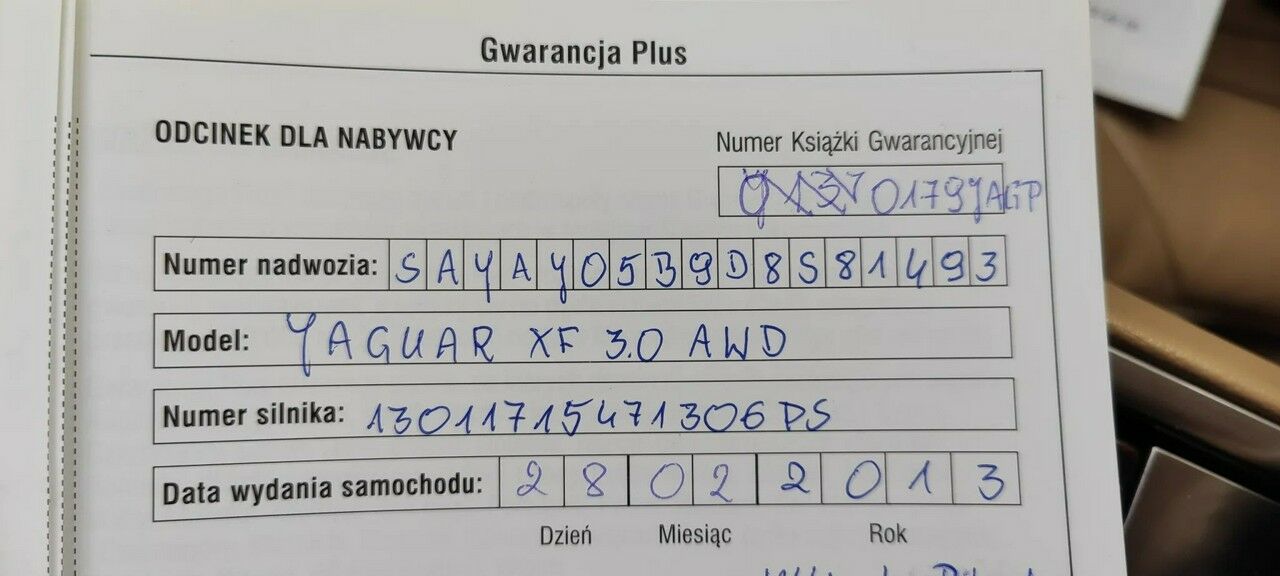 Gwarancja Plus
ODCINEK DLA NABYWCY
Numer Książki Gwarancyjnej
01797JAGP
Numer nadwozia: SAYAY05B9D8S81493
Model: YAGUAR XF 3.0 AWD
Numer silnika: 13011715471306PS
Data wydania samochodu: 28 02 2013
Dzień Miesiąc Rok